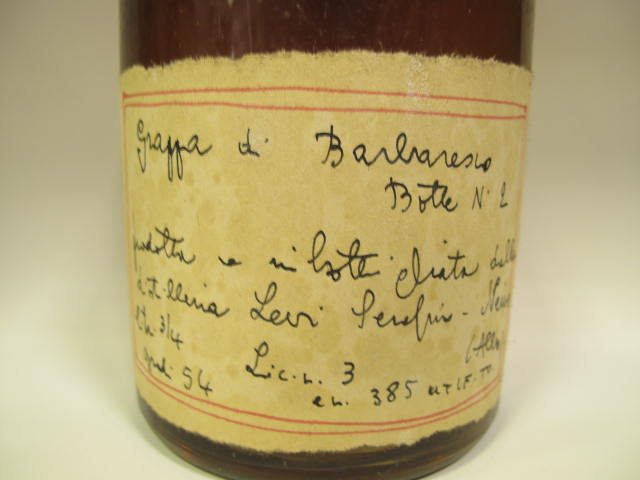 Grappa di Barbaresco
Botte N. 2
prodotta e imbottigliata dalla
distilleria Levi Serafino - Neive
lth 3/4 (Alba
gradi 54 Lic. n. 3
e n. 385 UTIF. TO